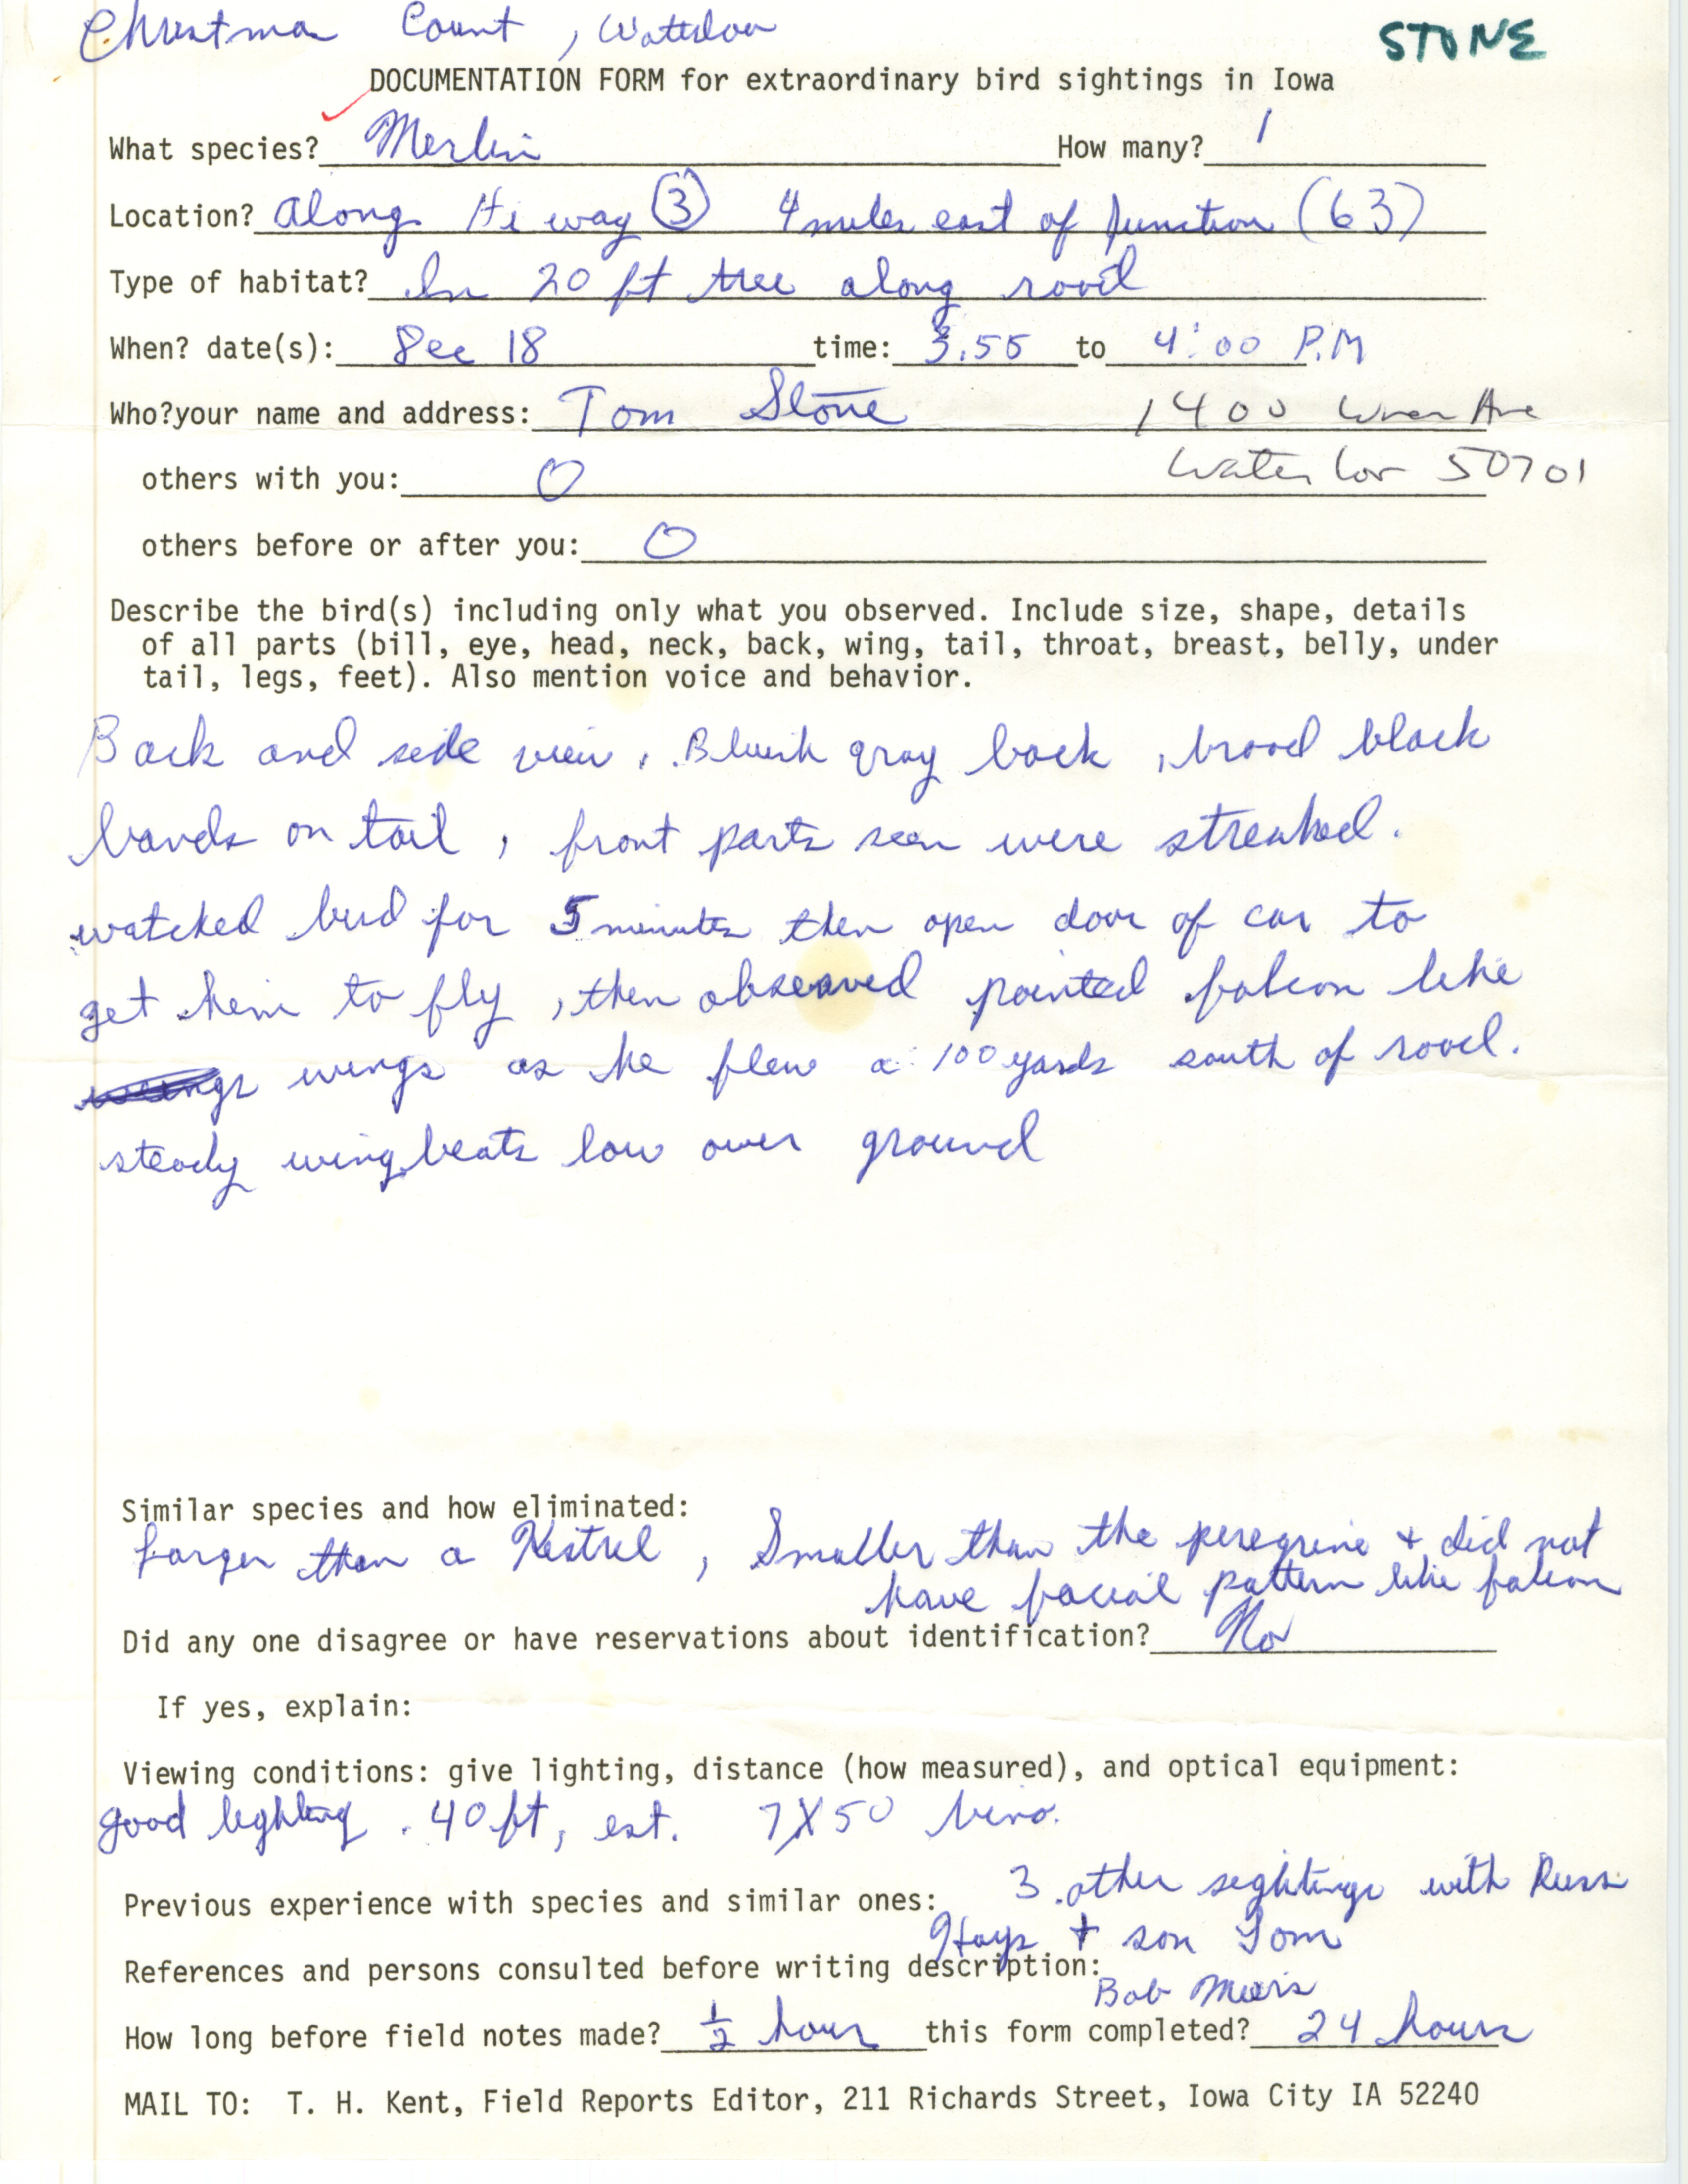 Christma Count, Waterloo
STONE
DOCUMENTATION FORM for extraordinary bird sightings in Iowa
What species? Merlin How many? 1
Location? along Hi way (3) 4 miles east of junction (63)
Type of habitat? In 20 ft tree along road
When? date(s): Dec 18 time: 3.55 to 4:00 P.M
Who?your name and address: Tom Stone 1400 Ave
Waterloo 50701
others with you: 0
others before or after you: 0
Describe the bird(s) including only what you observed. Include size, shape, details
of all parts (bill, eye, head, neck, back, wing, tail, throat, breast, belly, under
tail, legs, feet). Also mention voice and behavior.
Back and side view. Bluish gray back, broad black
bands on tail, front parts seen were streaked.
watched bird for 5 minutes then open door of car to
get him to fly, then observed pointed falcon like
wings as he flew a 100 yards south of road.
steady wing beats low over ground
Similar species and how eliminated:
Larger than a Kestrel, Smaller than the peregrine + did not
have facial pattern like falcon
Did any one disagree or have reservations about identification? No
If yes, explain:
Viewing conditions: give lighting, distance (how measured), and optical equipment:
good lighting. 40 ft, est. 7X50 bino.
Previous experience with species and similar ones: 3 other sightings with Russ
Hays + son Tom
References and persons consulted before writing description:
Bob
How long before field notes made? 1/2 hour this form completed? 24 hours
MAIL TO: T. H. Kent, Field Reports Editor, 211 Richards Street, Iowa City IA 52240